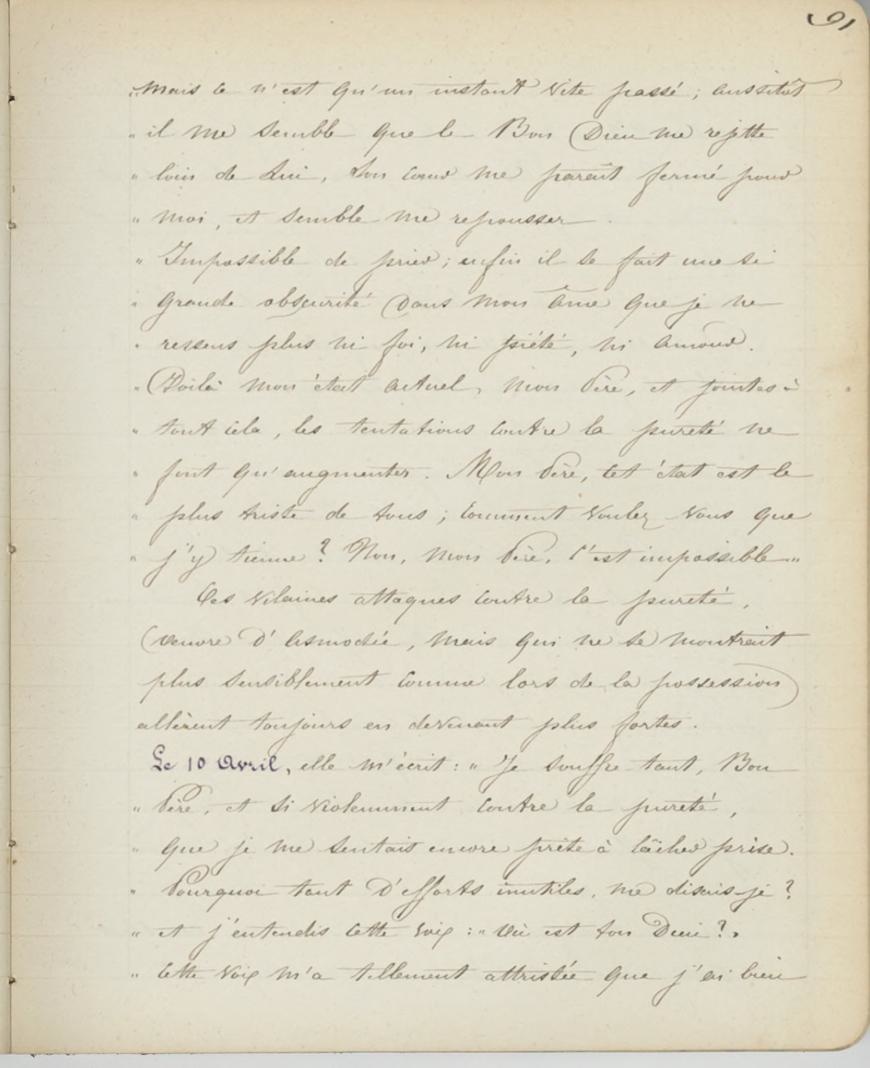 91
" mais ce n'est qu'un instant vite passé ; aussitôt
" il me semble que le Bon Dieu me rejette
" loin de Lui, Son cœur me paraît fermé pour
" moi, et semble me repousser.
" Impossible de prier ; enfin il se fait une si
" grande obscurité dans mon âme que je ne
" ressens plus ni foi, ni piété, ni amour.
" Voilà mon état actuel, mon Père, et jointes à
" tout cela, les tentations contre la pureté ne
" font qu'augmenter. Mon Père, cet état est le
" plus triste de tous ; comment voulez-vous que
" j'y tienne ? Non, mon Père, c'est impossible "
Ces vilaines attaques contre la pureté,
(œuvre d'Asmodée, mais qui ne se montrait
plus sensiblement comme lors de la possession)
allèrent toujours en devenant plus fortes.
Le 10 Avril, elle m'écrit : " Je souffre tant, Bon
" Père, et si violemment contre la pureté,
" que je me sentais encore prête à lâcher prise.
" Pourquoi tant d'efforts inutiles, me disais-je ?
" et j'entendis cette voix : " Où est ton Dieu ? "
" Cette voix m'a tellement attristée que j'ai bien